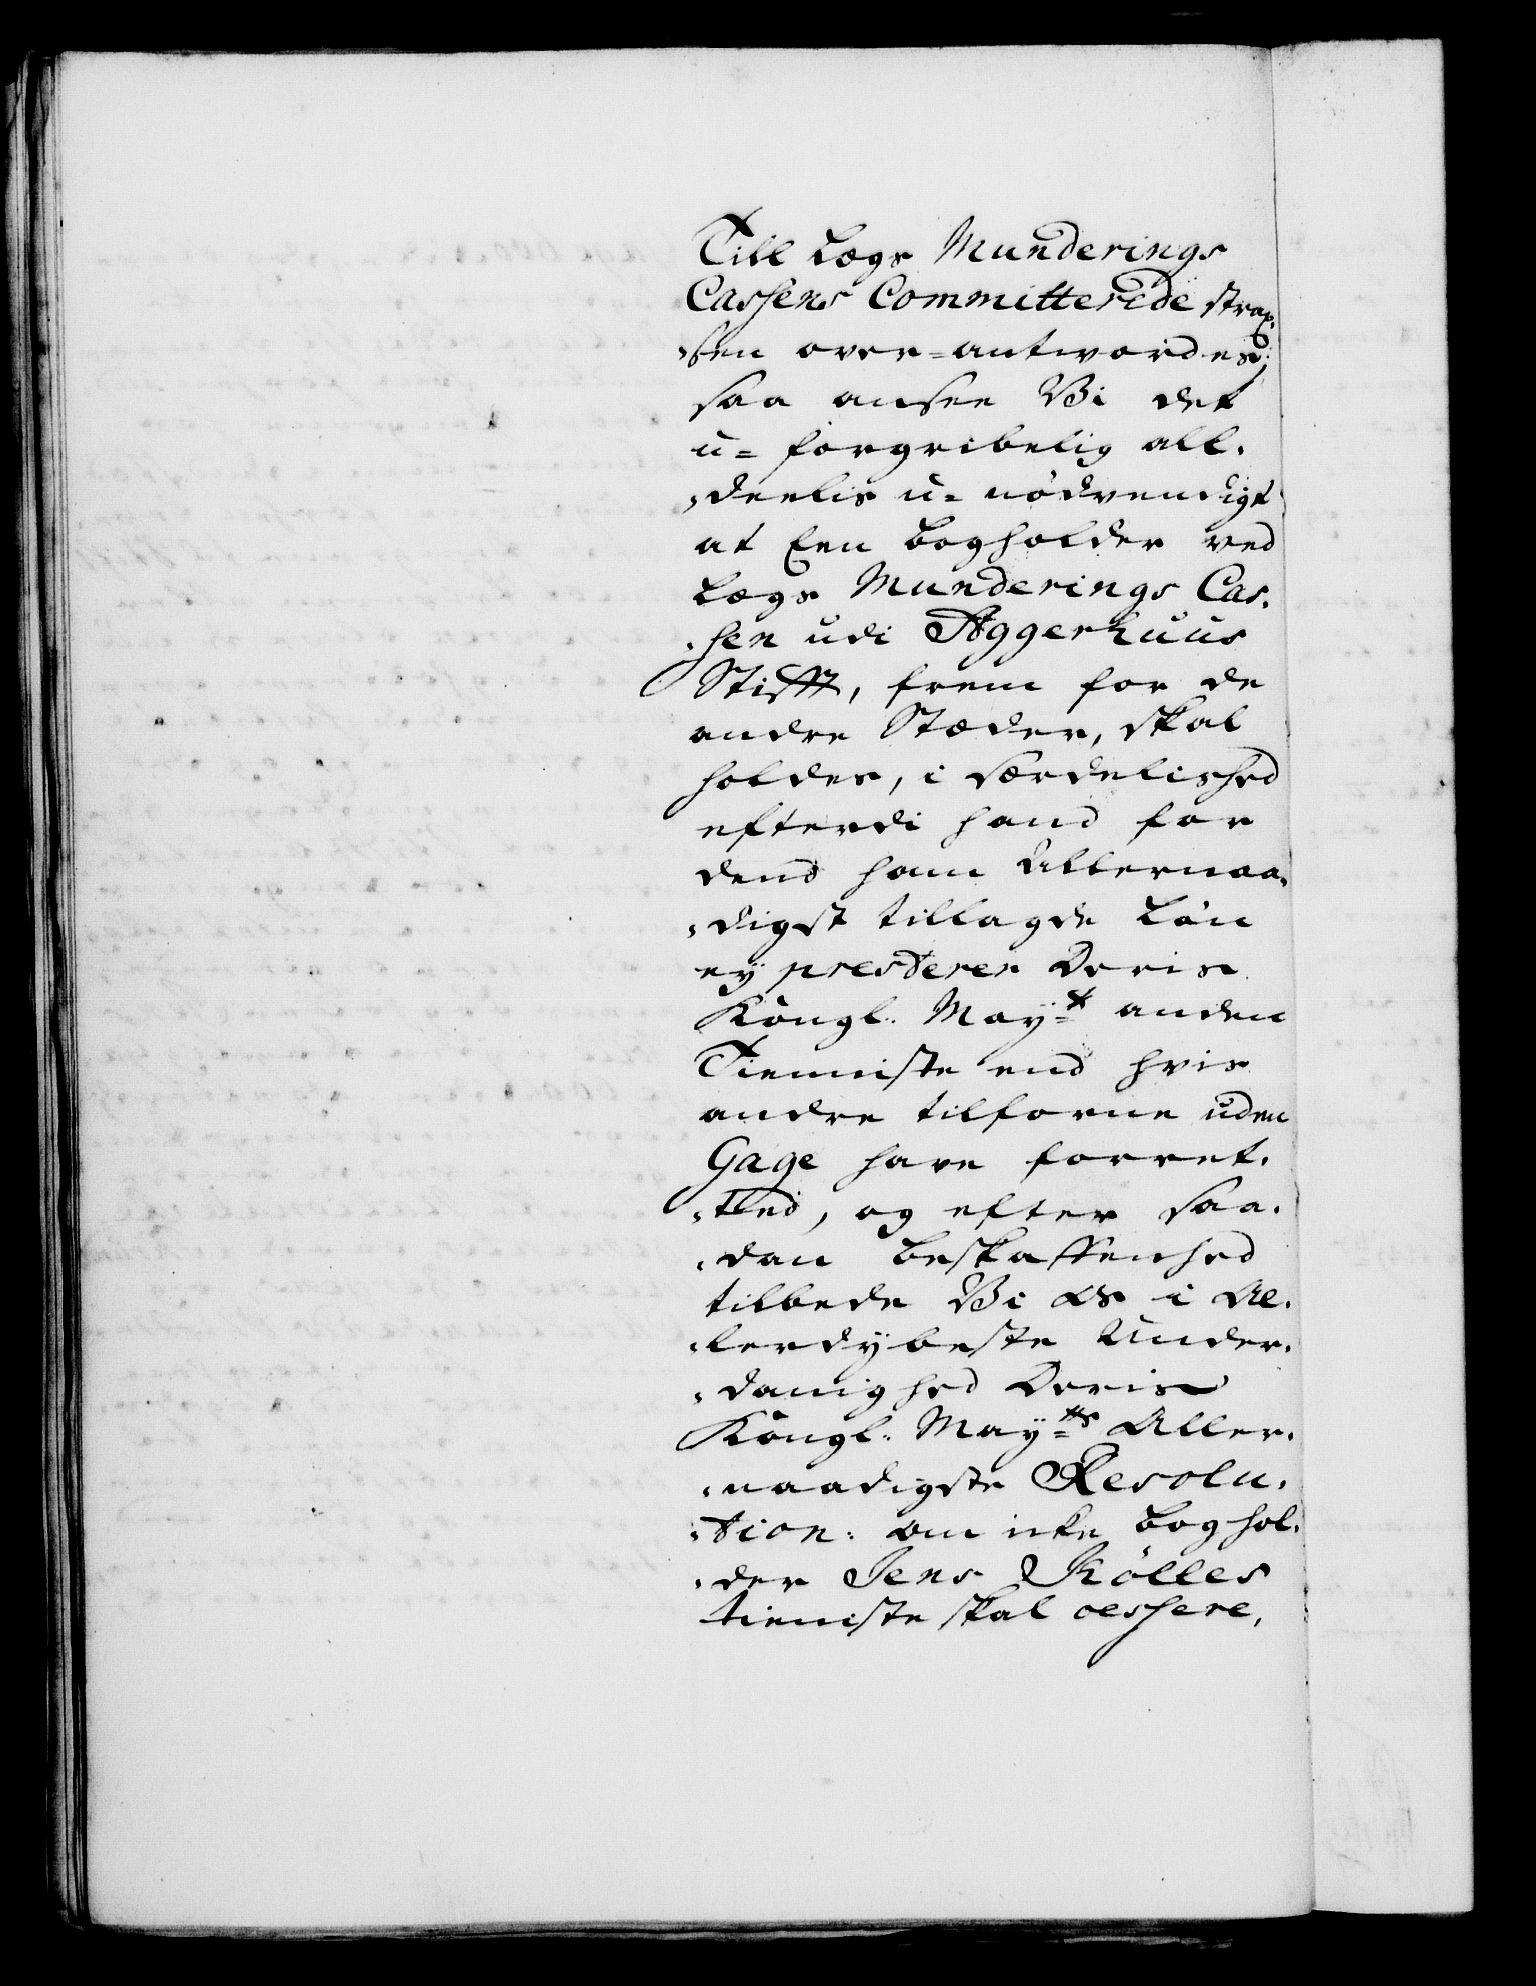 Till Legs Munderings
Cassens Committerede strax,
,sen over=antwordes;
saa ansee Vi det
u=forgribelig all,
,deelis u=nödvendigt
at Een bogholder ved
Legs Munderings Cas,
,sen udi Aggerhuus
Stifft, frem for de
andre Stæder, skal
holdes, i særdelished
efterdi hand for
dend ham Allernaa,
,digst tillagde Lön
eÿ presterer Deris
Kongl: Maÿ=t anden
Tienniste end hvis
andre tilforne uden
Gage have forret,
,tted, og efter saa,
,dan beskaffenhed
tilbede Vi os i Al,
,lerdÿbeste Under,
,danighed Deris
Kongl: Maÿ=ts Aller,
,naadigste Resolu,
,tion: om icke boghol,
,der Jens Kölles
tieniste skal cessere,